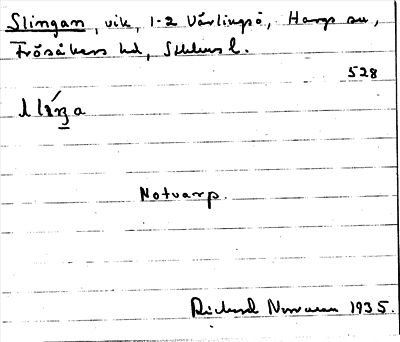 Slingan, vik, 1-2 Vårlingsö, Hargs sn,
Frösåkers hd, Sthlms l.
528
Notvarp.
Richard Norman 1935.